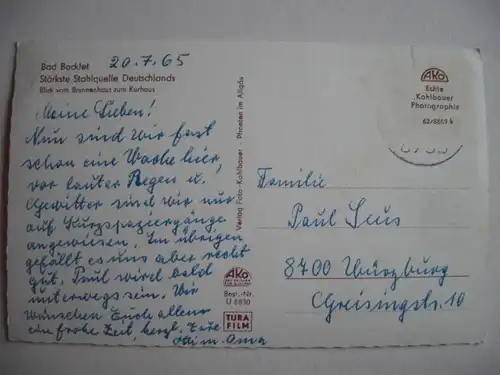 Bad Bocklet
Stärkste Stahlquelle Deutschlands
Blick vom Brunnenhaus zum Kurhaus
20.7.65
Meine Lieben!
Nun sind wir fast
schon eine Woche hier,
vor lauter Regen u.
Gewitter sind wir nur
auf Kurzspaziergänge
angewiesen. Im übrigen
gefällt es uns aber recht
gut. Paul wird bald
unterwegs sein. Wir
wünschen Euch allen
eine frohe Zeit, herzl.
Oma
Verlag Foto-Kohlbauer · Pfronten im Allgäu
AKo
Best.-Nr.
TURA
FILM
AKo
Echte
Kohlbauer
Photographie
62/8869 k
Familie
Paul
8700 Würzburg
Greisingstr. 10